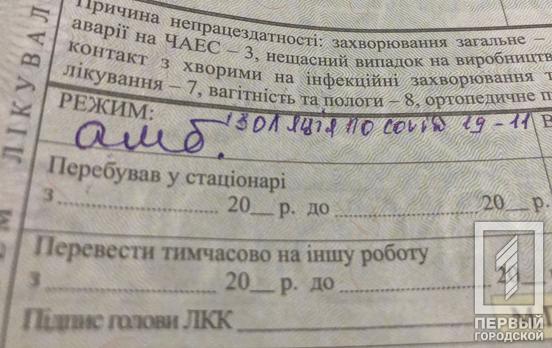 ЛІКУВАЛ
Причина непрацездатності: захворювання загальне –
аварії на ЧАЕС – 3, нещасний випадок на виробництв
контакт з хворими на інфекційні захворювання т
лікування – 7, вагітність та пологи – 8, ортопедичне п
РЕЖИМ:
амб. ізоляція по covid 19 - 11
Перебував у стаціонарі
з 20__ р. до 20__ р.
Перевести тимчасово на іншу роботу
з 20__ р. до 20
Підпис голови ЛКК
М.П
1
ПЕРВЫЙ
ГОРОДСКОЙ